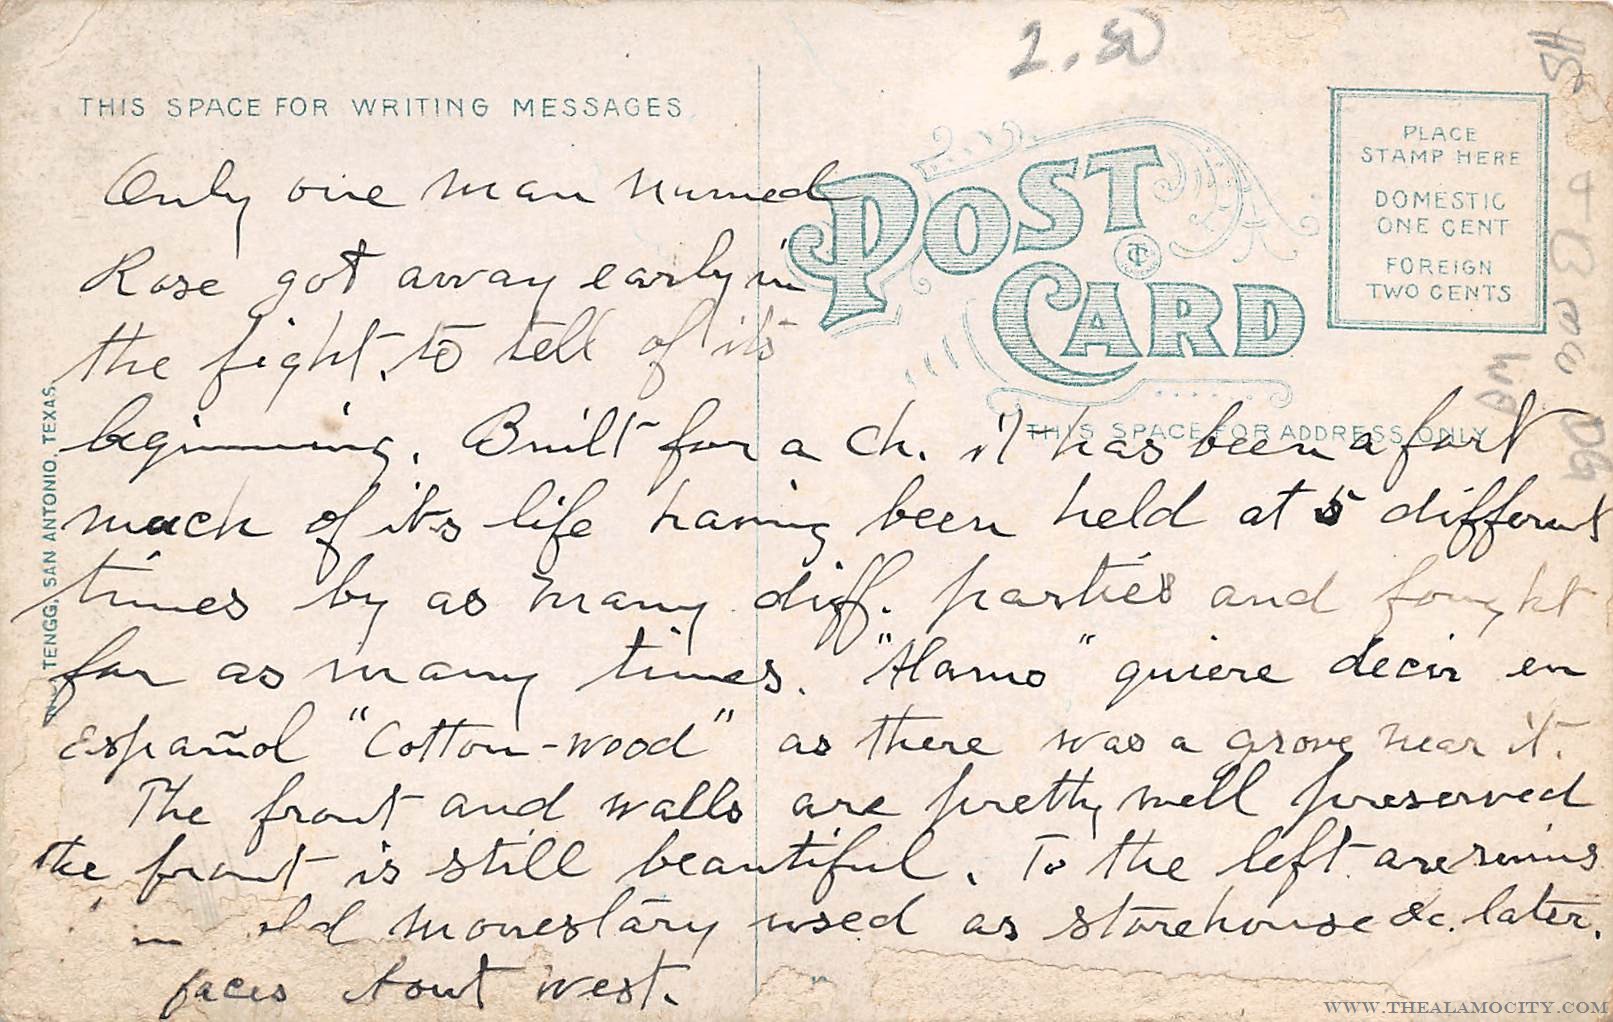 2.50
THIS SPACE FOR WRITING MESSAGES
POST CARD
PLACE
STAMP HERE
DOMESTIC
ONE CENT
FOREIGN
TWO CENTS
THIS SPACE FOR ADDRESS ONLY
TENGG, SAN ANTONIO, TEXAS.
Only one man named
Rose got away early in
the fight, to tell of its
beginning. Built for a Ch. it has been a fort
much of its life having been held at 5 different
times by as many diff. parties and fought
for as many times. "Alamo" quiere decir en
Español "Cotton-wood" as there was a grove near it.
The front and walls are pretty well preserved
the front is still beautiful. To the left are ruins
old monestary used as storehouse &c. later.
faces about west.
WWW.THEALAMOCITY.COM